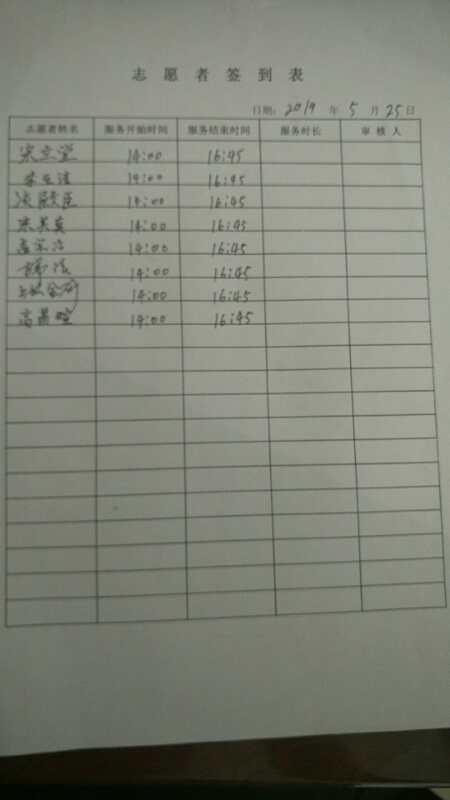 志愿者签到表
日期: 2019 年 5 月 25 日
志愿者姓名 服务开始时间 服务结束时间 服务时长 审核人
14:00 16:45
14:00 16:45
14:00 16:45
14:00 16:45
14:00 16:45
14:00 16:45
14:00 16:45
14:00 16:45